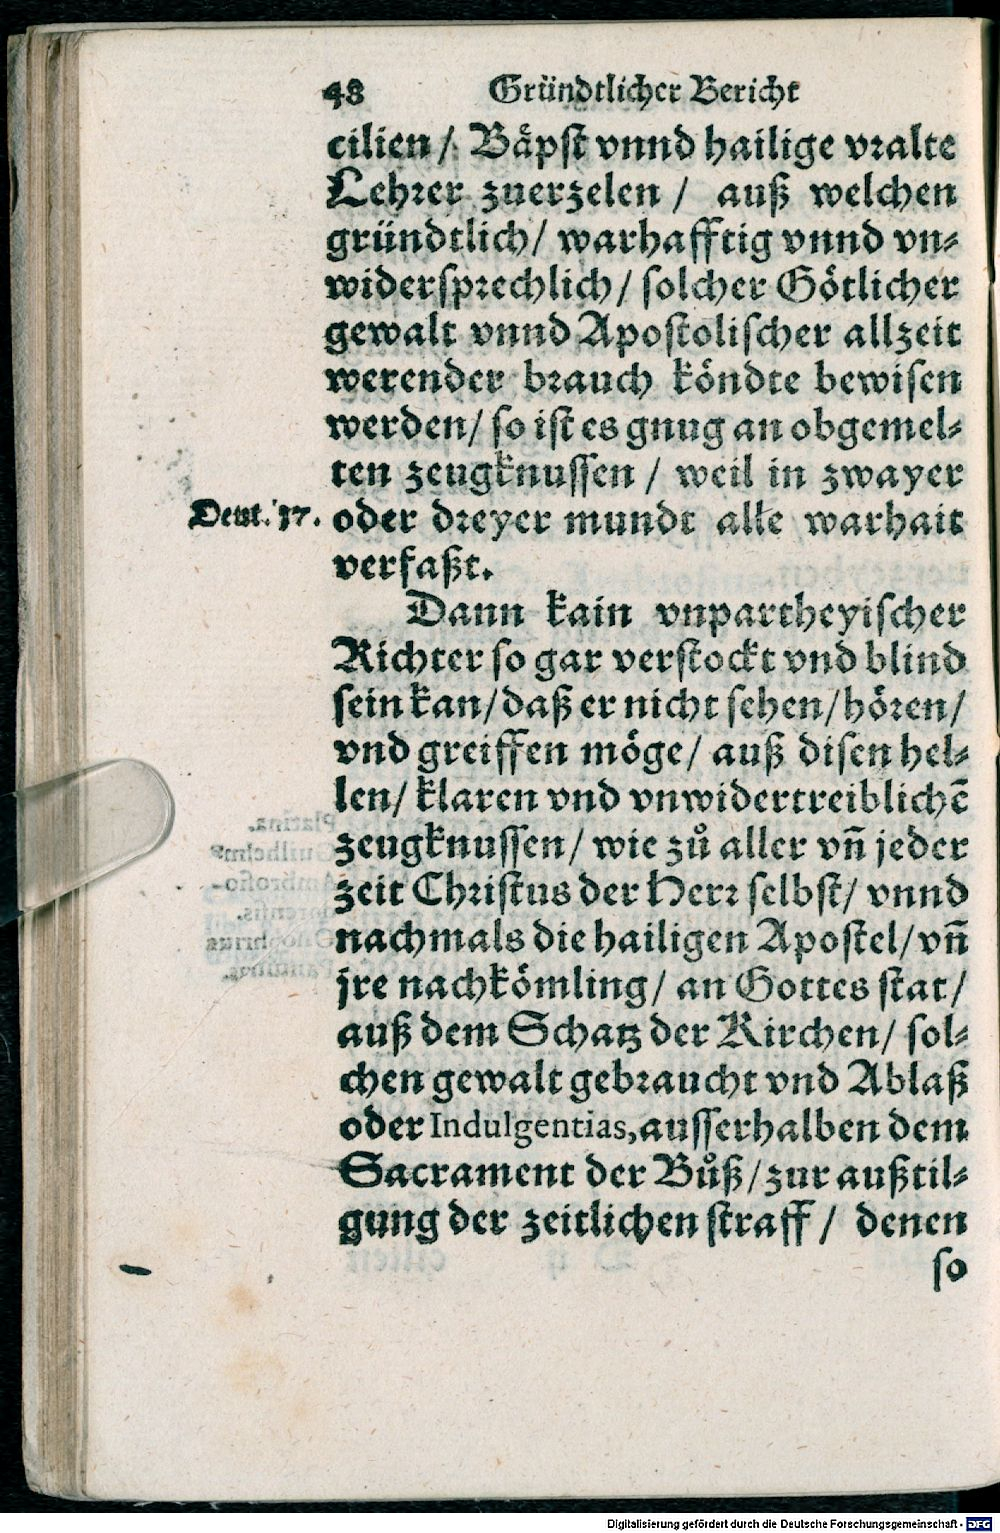 48 Gründtlicher Bericht
cilien / Båpst vnnd hailige vralte
Lehrer zuerzelen / auß welchen
gründtlich / warhafftig vnnd vn-
widersprechlich / solcher Götlicher
gewalt vnnd Apostolischer allzeit
werender brauch köndte bewisen
werden / so ist es gnug an obgemel-
ten zeugknussen / weil in zwayer
Deut. 17. oder dreyer mundt alle warhait
verfaßt.
Dann kain vnpartheyischer
Richter so gar verstockt vnd blind
sein kan / daß er nicht sehen / hören /
vnd greiffen möge / auß disen hel-
len / klaren vnd vnwidertreiblichẽ
zeugknussen / wie zů aller vñ jeder
zeit Christus der Herr selbst / vnnd
nachmals die hailigen Apostel / vñ
jre nachkömling / an Gottes stat /
auß dem Schatz der Kirchen / sol-
chen gewalt gebraucht vnd Ablaß
oder Indulgentias, ausserhalben dem
Sacrament der Bůß / zur außtil-
gung der zeitlichen straff / denen
so
Digitalisierung gefördert durch die Deutsche Forschungsgemeinschaft - DFG